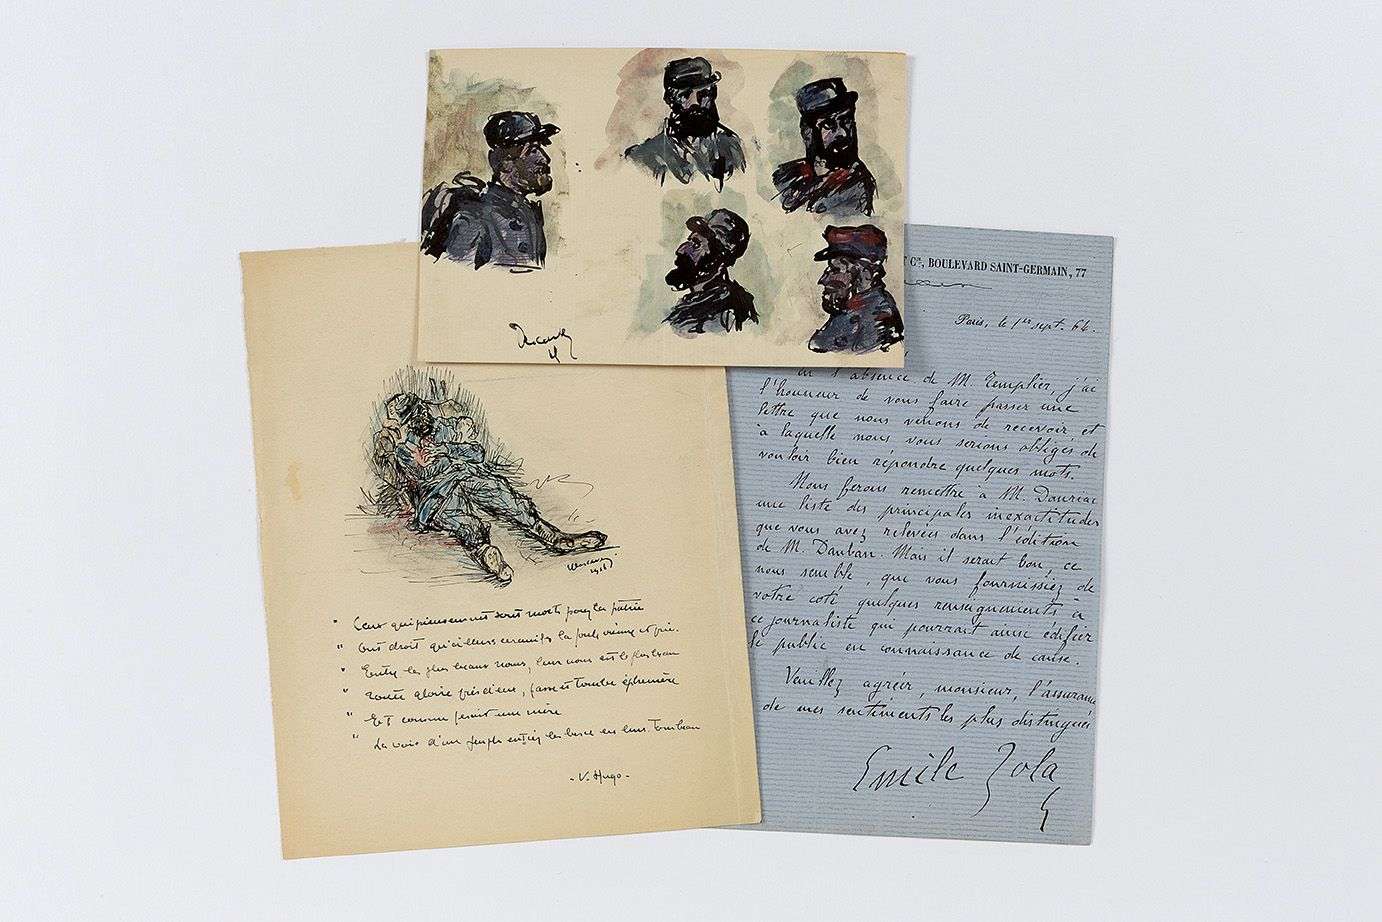 " Ceux qui pieusement sont morts pour la patrie
" Ont droit qu'à leurs cercueils la foule vienne et prie.
" Entre les plus beaux noms, leur nom est le plus beau
" Toute gloire près d'eux, passe et tombe éphémère
" Et comme ferait une mère
" La voix d'un peuple entier les berce en leur tombeau
- V. Hugo -
1916
Cie, BOULEVARD SAINT-GERMAIN, 77
Paris, le 1er sept. 64.
l'absence de M. Templier, j'ai
l'honneur de vous faire passer une
lettre que nous venons de recevoir, et
à laquelle nous vous serions obligés de
vouloir bien répondre quelques mots.
Nous ferons remettre à M. Dauriac
une liste des principales inexactitudes
que vous avez relevées dans l'édition
de M. Dauban. Mais il serait bon, ce
nous semble, que vous fournissiez de
votre coté quelques renseignements à
ce journaliste qui pourrait ainsi édifier
le public en connaissance de cause.
Veuillez agréer, monsieur, l'assurance
de mes sentiments les plus distingués
Emile Zola